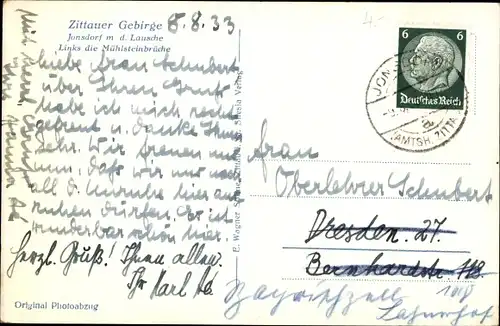 Zittauer Gebirge
Jonsdorf m d. Lausche
Links die Mühlsteinbrüche
8.8.33
Liebe Frau Schubert
über Ihren Gruß
habe ich mich recht
gefreut u. danke Ihnen
sehr. Wir freuen uns
nun, daß wir uns nach
all d. Unruhe hier aus
ruhen dürfen. Es ist
wunderbar schön hier.
Herzl. Gruß! Ihnen allen.
Ihr Karl
Original Photoabzug
E. Wagner Verlag
6 6
Deutsches Reich
JONSDORF
AMTSH. ZITTAU
Frau
Oberlehrer Schubert
Dresden. 27.
Bernhardstr.
Bayrischzell